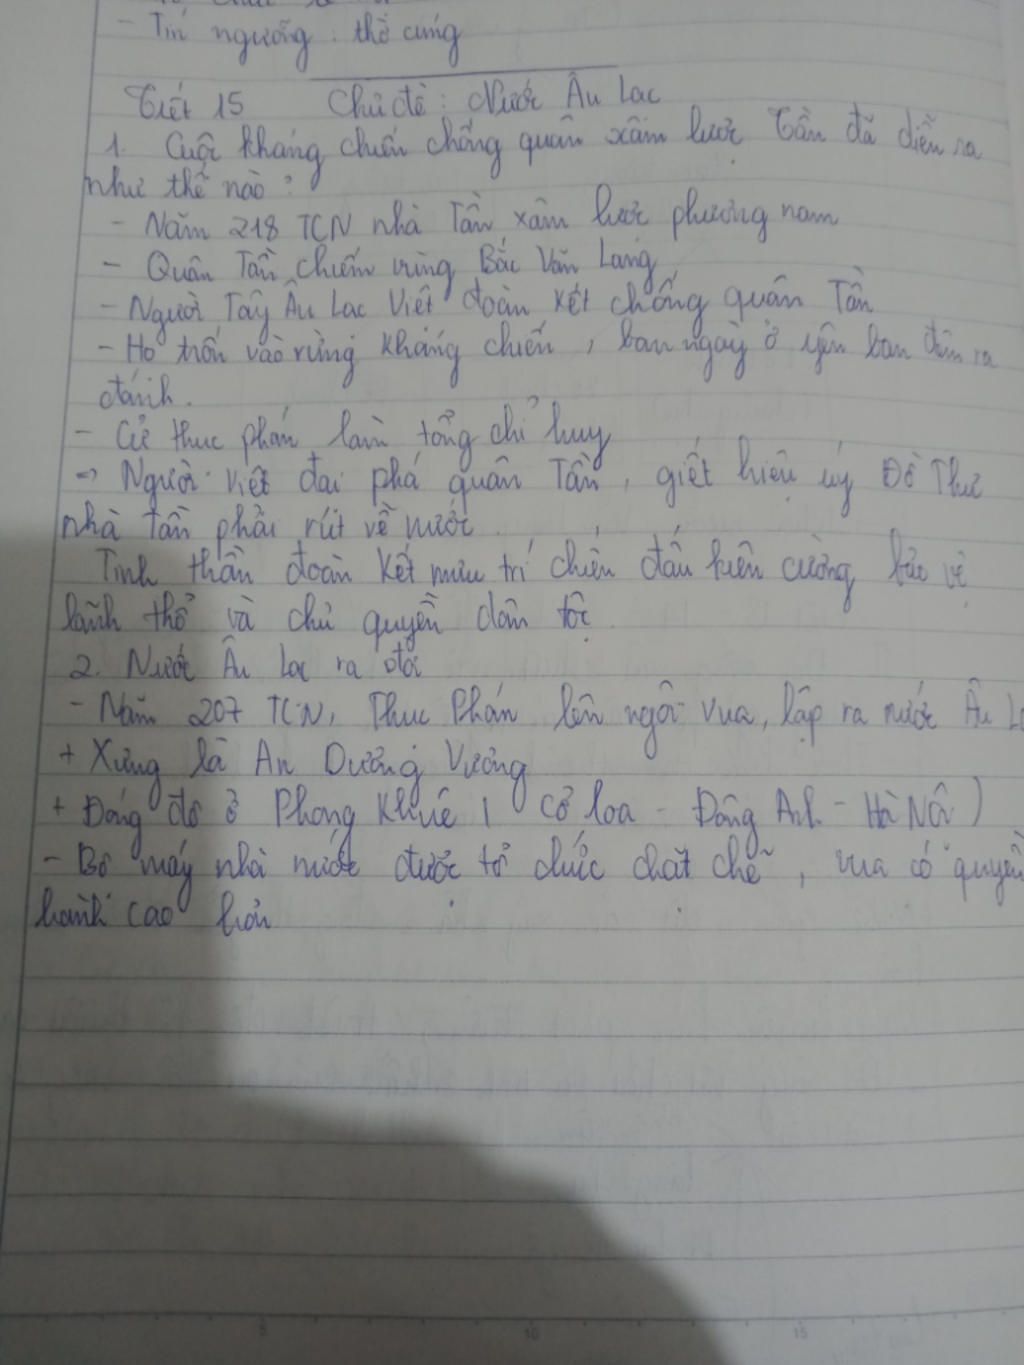 - Tín ngưỡng : thờ cúng
Tiết 15 Chủ đề : Nước Âu Lạc
1. Cuộc kháng chiến chống quân xâm lược Tần đã diễn ra
như thế nào ?
- Năm 218 TCN nhà Tần xâm lược phương nam
- Quân Tần chiếm vùng Bắc Văn Lang
- Người Tây Âu Lạc Việt đoàn kết chống quân Tần
- Họ trốn vào rừng kháng chiến , ban ngày ở yên ban đêm ra
đánh .
- Cử thục phán làm tổng chỉ huy
=> Người Việt đại phá quân Tần , giết hiệu úy Đồ Thư
nhà tần phải rút về nước .
Tinh thần đoàn kết mưu trí chiến đấu kiên cường bảo vệ
lãnh thổ và chủ quyền dân tộc .
2. Nước Âu Lạc ra đời
- Năm 207 TCN, Thục Phán lên ngôi vua, lập ra nước Âu
+ Xưng là An Dương Vương
+ Đóng đô ở Phong Khuê ( cổ loa - Đông Anh - Hà Nội )
- Bộ máy nhà nước được tổ chức chặt chẽ , vua có quyền
hành cao hơn